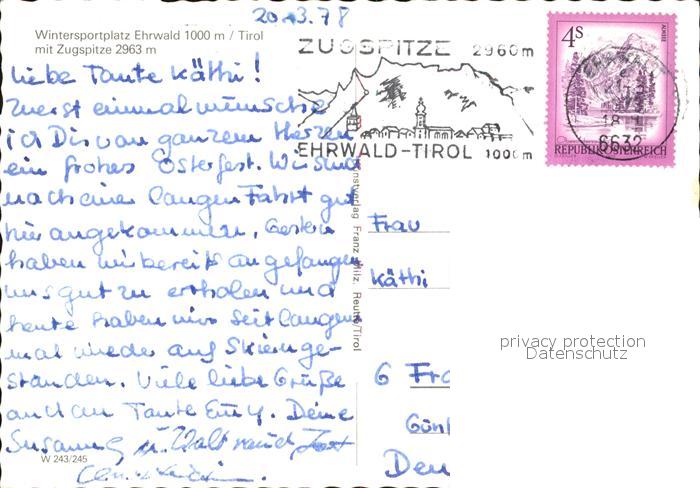 20.3.78
Wintersportplatz Ehrwald 1000 m / Tirol
mit Zugspitze 2963 m
Liebe Tante Käthi!
Zuerst einmal wünsche
ich Dir von ganzem Herzen
ein frohes Osterfest. Wir sind
nach einer langen Fahrt gut
hier angekommen. Gestern
haben wir bereits angefangen
uns gut zu erholen und
heute haben wir seit langem
mal wieder auf Skiern ge-
standen. Viele liebe Grüße
auch an Tante Emy. Deine
Susanne u.
W 243/245
ZUGSPITZE 2960m
EHRWALD-TIROL 1000m
4S
ALMSEE
REPUBLIK ÖSTERREICH
6632
Kunstverlag Franz Milz, Reutte/Tirol
Frau
Käthi
6 Fra
Gün
Deu
privacy protection
Datenschutz